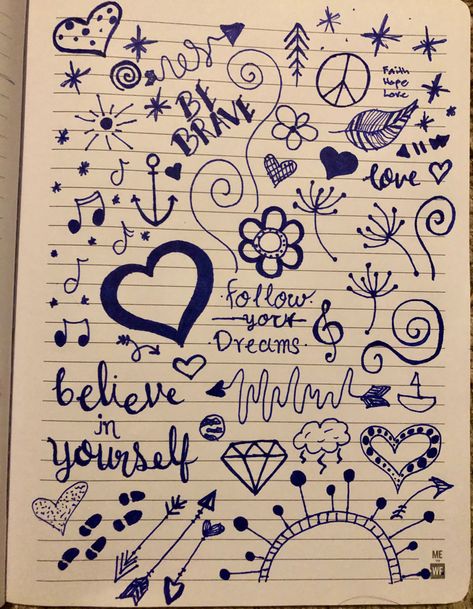 BE
BRAVE
Faith
Hope
Love
love
Follow
your
Dreams
believe
in
yourself
ME
WF